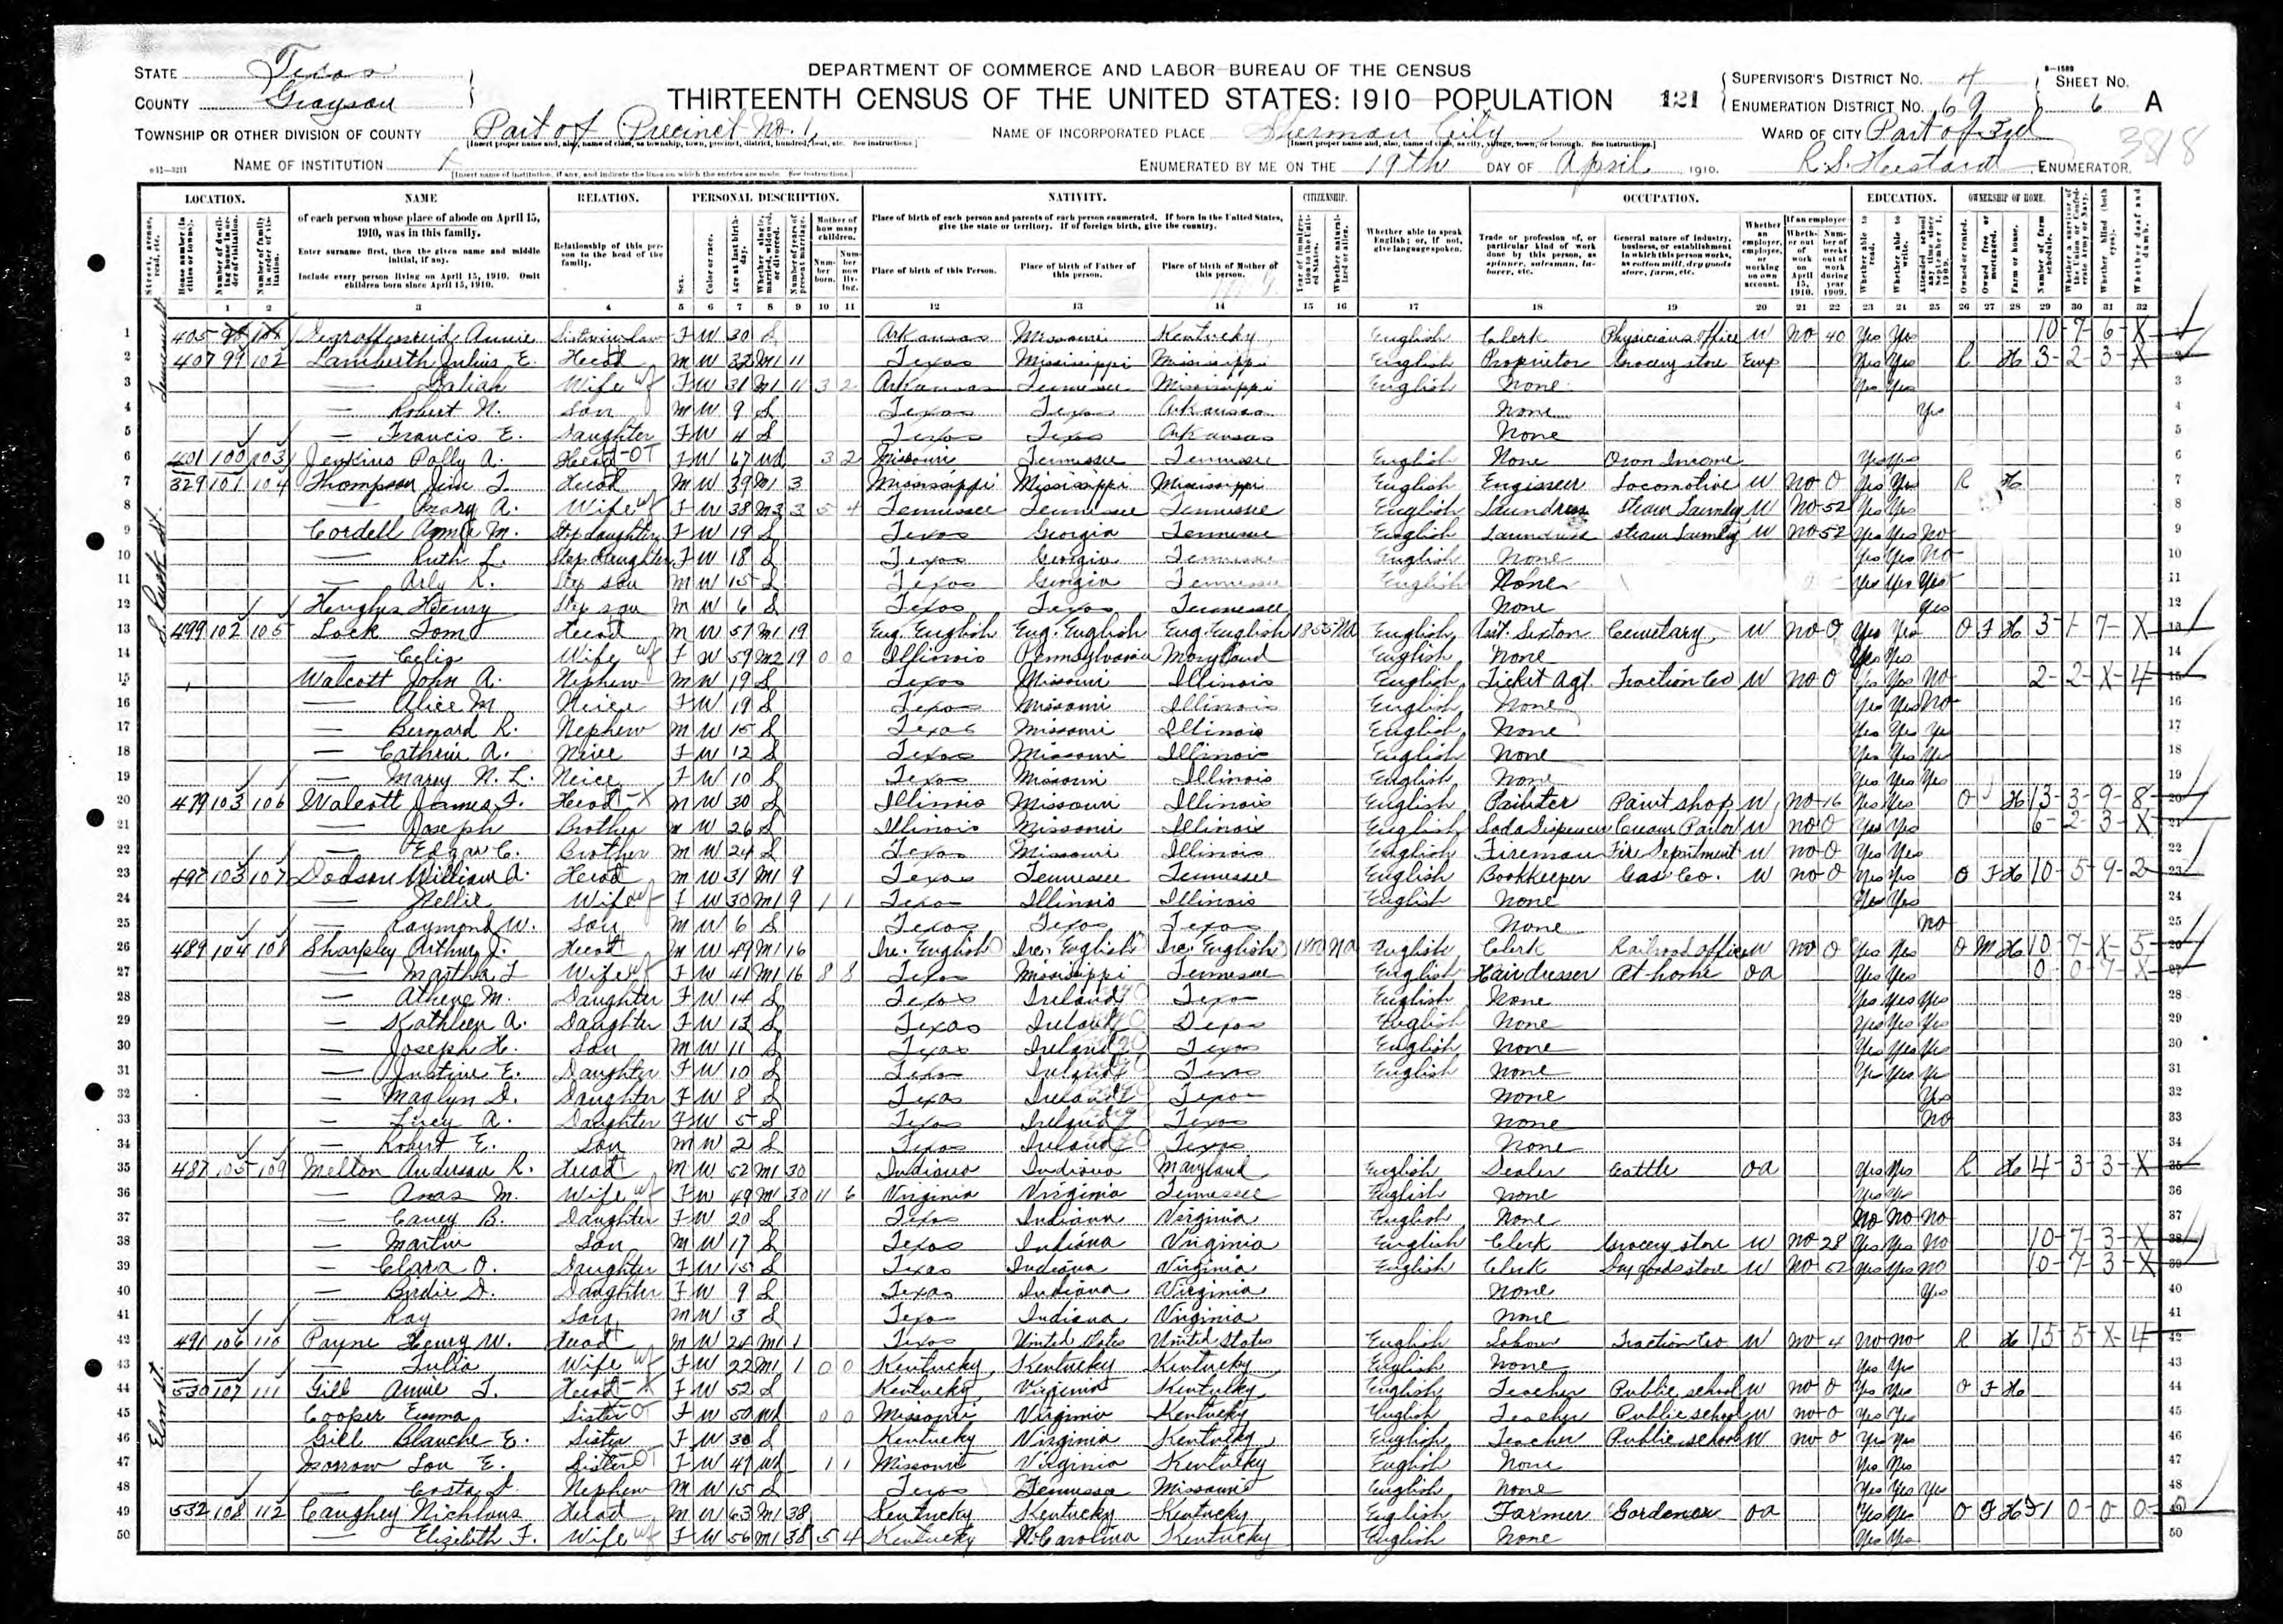 STATE Texas
COUNTY Grayson
TOWNSHIP OR OTHER DIVISION OF COUNTY Part of Precinct No. 1
[Insert proper name and, also, name of class, as township, town, precinct, district, hundred, beat, etc. See instructions.]
NAME OF INSTITUTION X
[Insert name of institution, if any, and indicate the lines on which the entries are made. See instructions.]
DEPARTMENT OF COMMERCE AND LABOR—BUREAU OF THE CENSUS
THIRTEENTH CENSUS OF THE UNITED STATES: 1910—POPULATION
121
NAME OF INCORPORATED PLACE Sherman City
[Insert proper name and, also, name of class, as city, village, town, or borough. See instructions.]
ENUMERATED BY ME ON THE 19th DAY OF April, 1910.
SUPERVISOR'S DISTRICT No. 4
ENUMERATION DISTRICT No. 69
SHEET No. 6 A
WARD OF CITY Part of 3rd
ENUMERATOR.
3818
LOCATION. NAME RELATION. PERSONAL DESCRIPTION. NATIVITY. CITIZENSHIP. OCCUPATION. EDUCATION. OWNERSHIP OF HOME.
of each person whose place of abode on April 15, 1910, was in this family.
Enter surname first, then the given name and middle initial, if any.
Include every person living on April 15, 1910. Omit children born since April 15, 1910.
Relationship of this person to the head of the family.
Place of birth of each person and parents of each person enumerated. If born in the United States, give the state or territory. If of foreign birth, give the country.
Place of birth of this Person. Place of birth of Father of this person. Place of birth of Mother of this person.
Whether able to speak English; or, if not, give language spoken.
1 2 3 4 5 6 7 8 9 10 11 12 13 14 15 16 17 18 19 20 21 22 23 24 25 26 27 28 29 30 31 32
1 405 Degraffenreid Annie Sister in law F W 30 S Arkansas Missouri Kentucky English Clerk Physicians office W No 40 Yes Yes 10-7-6-X
2 407 99 102 Lamberth Julius E. Head M W 32 M1 11 Texas Mississippi Mississippi English Proprietor Grocery store Emp Yes Yes R H 3-2-3-X
3 — Wife F W 31 M1 11 3 2 Arkansas Tennessee Mississippi English None Yes Yes
4 — Robert N. Son M W 9 S Texas Texas Arkansas None Yes
5 — Francis E. Daughter F W 4 S Texas Texas Arkansas None
6 401 100 103 Jenkins Polly A. Head F W 67 Wd 3 2 Missouri Tennessee Tennessee English None Own Income Yes Yes
7 329 101 104 Thompson Jim T. Head M W 39 M1 3 Mississippi Mississippi Mississippi English Engineer Locomotive W No 0 Yes Yes R H
8 — Mary A. Wife F W 38 M3 3 5 4 Tennessee Tennessee Tennessee English Laundress Steam Laundry W No 52 Yes Yes
9 Cordell Annie M. Step daughter F W 19 S Texas Georgia Tennessee English Laundress Steam Laundry W No 52 Yes Yes No
10 — Ruth L. Step daughter F W 18 S Texas Georgia Tennessee English None Yes Yes No
11 — Arly R. Step son M W 15 S Texas Georgia Tennessee English None Yes Yes Yes
12 Henry Step son M W 6 S Texas Texas Tennessee None Yes
13 499 102 105 Lock Tom Head M W 57 M1 19 Eng. English Eng. English Eng. English 1855 Na English Asst. Sexton Cemetary W No 0 Yes Yes O F H 3-1-7-X
14 — Celia Wife F W 59 M2 19 0 0 Illinois Pennsylvania Maryland English None Yes Yes
15 Walcott John A. Nephew M W 19 S Texas Missouri Illinois English Ticket Agt Traction Co W No 0 Yes Yes No 2-2-X-4
16 — Alice M Neice F W 19 S Texas Missouri Illinois English None Yes Yes No
17 — Bernard R. Nephew M W 15 S Texas Missouri Illinois English None Yes Yes Yes
18 — Cathrin A. Neice F W 12 S Texas Missouri Illinois English None Yes Yes Yes
19 — Marey N. L. Neice F W 10 S Texas Missouri Illinois English None Yes Yes Yes
20 479 103 106 Walcott James F. Head M W 30 S Illinois Missouri Illinois English Painter Paint shop W No 16 Yes Yes O H 13-3-9-8
21 — Joseph Brother M W 26 S Illinois Missouri Illinois English Soda Dispenser Cream Parlor W No 0 Yes Yes 6-2-3-X
22 — Edgar C. Brother M W 24 S Texas Missouri Illinois English Fireman Fire Department W No 0 Yes Yes
23 497 103 107 Dodson William A. Head M W 31 M1 9 Texas Tennessee Tennessee English Bookkeeper Gas Co. W No 0 Yes Yes O F H 10-5-9-2
24 — Nellie Wife F W 30 M1 9 1 1 Texas Illinois Illinois English None Yes Yes
25 — Raymond W. Son M W 6 S Texas Texas Texas None No
26 489 104 108 Sharpley Arthur J. Head M W 49 M1 16 Ire. English Ire. English Ire. English Na English Clerk Railroad office W No 0 Yes Yes O M H 10-7-X-5
27 — Martha L Wife F W 41 M1 16 8 8 Texas Mississippi Tennessee English Hairdresser At home OA Yes Yes 0-0-7-X
28 — Athene M. Daughter F W 14 S Texas Ireland Texas English None Yes Yes Yes
29 — Kathleen A. Daughter F W 13 S Texas Ireland Texas English None Yes Yes Yes
30 — Joseph H. Son M W 11 S Texas Ireland Texas English None Yes Yes Yes
31 — Justine E. Daughter F W 10 S Texas Ireland Texas English None Yes Yes Yes
32 — Maglyn D. Daughter F W 8 S Texas Ireland Texas None Yes
33 — A. Daughter F W 5 S Texas Ireland Texas None No
34 — Robert E. Son M W 2 S Texas Ireland Texas None
35 487 105 109 Melton Anderson R. Head M W 52 M1 30 Indiana Indiana Maryland English Dealer Cattle OA Yes Yes R H 4-3-3-X
36 — M. Wife F W 49 M1 30 11 6 Virginia Virginia Tennessee English None Yes Yes
37 — Caney B. Daughter F W 20 S Texas Indiana Virginia English None No No No
38 — Martin Son M W 17 S Texas Indiana Virginia English Clerk Grocery store W No 28 Yes Yes No 10-7-3-X
39 — Clara O. Daughter F W 15 S Texas Indiana Virginia English Clerk Dry goods store W No 52 Yes Yes No 10-7-3-X
40 — Birdie D. Daughter F W 9 S Texas Indiana Virginia None Yes
41 — Ray Son M W 3 S Texas Indiana Virginia None
42 491 106 110 Payne Henry W. Head M W 24 M1 1 Texas United States United States English Labor Traction Co. W No 4 No No R H 15-5-X-4
43 — Julia Wife F W 22 M1 1 0 0 Kentucky Kentucky Kentucky English None Yes Yes
44 530 107 111 Gill Annie T. Head F W 52 S Kentucky Virginia Kentucky English Teacher Public school W No 0 Yes Yes O F H
45 Cooper Emma Sister F W 50 Wd 0 0 Missouri Virginia Kentucky English Teacher Public school W No 0 Yes Yes
46 Gill Blanche E. Sister F W 30 S Kentucky Virginia Kentucky English Teacher Public school W No 0 Yes Yes
47 Morrow Lou E. Sister F W 47 Wd 1 1 Missouri Virginia Kentucky English None Yes Yes
48 — Costa D. Nephew M W 15 S Texas Tennessee Missouri English None Yes Yes Yes
49 532 108 112 Caughey Nichlous Head M W 63 M1 38 Kentucky Kentucky Kentucky English Farmer Gardener OA Yes Yes O F H 51 0-0-0
50 — Elizebith F. Wife F W 56 M1 38 5 4 Kentucky N. Carolina Kentucky English None Yes Yes
S. Rusk St.
Elm St.